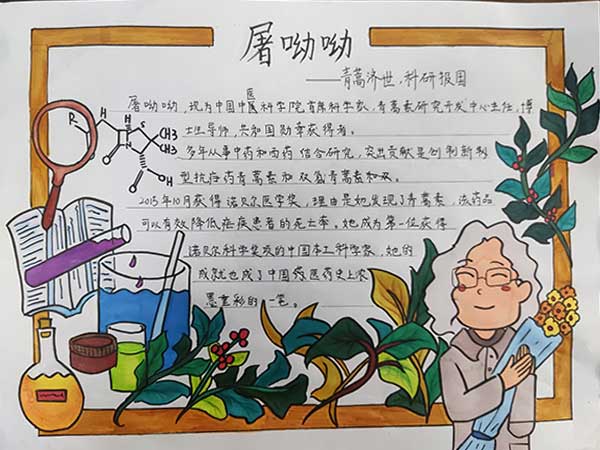 屠呦呦
——青蒿济世,科研报国
屠呦呦,现为中国中医科学院首席科学家,青蒿素研究开发中心主任,博
士生导师,共和国勋章获得者。
多年从事中药和西药结合研究,突出贡献是创制新型
型抗疟药青蒿素和双氢青蒿素和双。
2015年10月获得诺贝尔医学奖,理由是她发现了青蒿素,该药品
可以有效降低疟疾患者的死亡率。她成为第一位获得
诺贝尔科学奖项的中国本土科学家,她的
成就也成了中国药医药史上浓
墨重彩的一笔。
R
S
CH3
CH3
N
O
O
OH